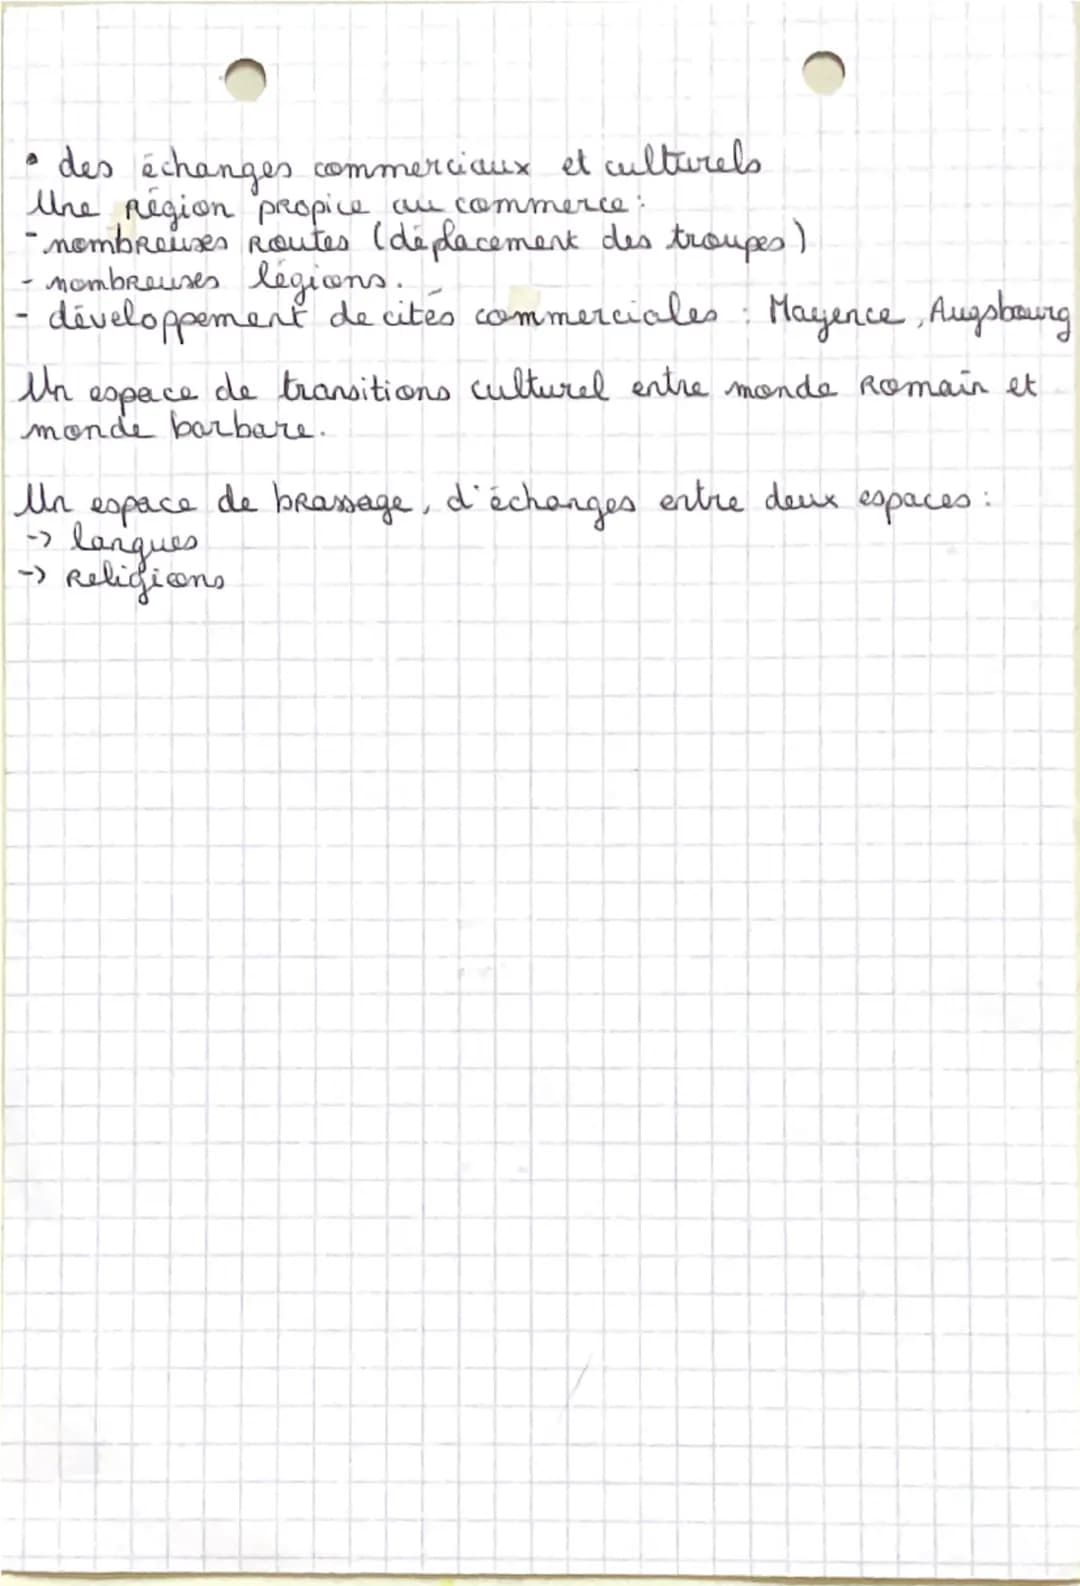 • des échanges commerciaux et culturels
Une Région propice au commerce :
- nombreuses Routes (déplacement des troupes)
- nombreuses légions.
- développement de cités commerciales : Mayence, Augsbourg
Un espace de transitions culturel entre monde Romain et
monde barbare.
Un espace de brassage, d'échanges entre deux espaces :
-> langues
-> Religions